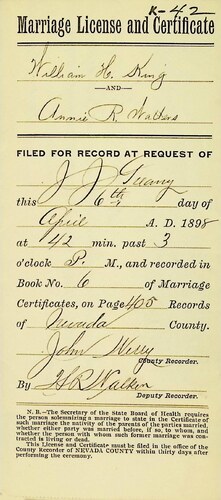 K-42
Marriage License and Certificate
William H. King
—AND—
Annie R. Walters
FILED FOR RECORD AT REQUEST OF
J. J.
this 6th day of
April A. D. 1898
at 42 min. past 3
o'clock P. M., and recorded in
Book No. 6 of Marriage
Certificates, on Page 405 Records
of Nevada County.
John Werry
County Recorder.
By H R Walker
Deputy Recorder.
N. B.—The Secretary of the State Board of Health requires
the person solemnizing a marriage to state in the Certificate of
such marriage the nativity of the parents of the parties married,
whether either party was married before, if so, to whom, and
whether the person with whom such former marriage was con-
tracted is living or dead.
This License and Certificate must be filed in the office of the
County Recorder of NEVADA COUNTY within thirty days after
performing the ceremony.